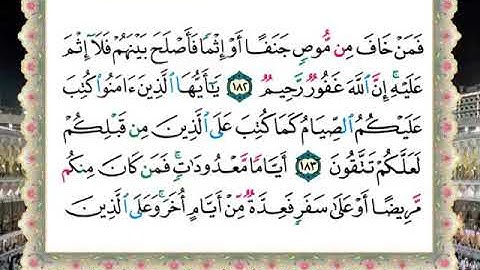 فَمَنْ خَافَ مِن مُّوصٍ جَنَفًا أَوْ إِثْمًا فَأَصْلَحَ بَيْنَهُمْ فَلَآ إِثْمَ
عَلَيْهِ ۚ إِنَّ ٱللَّهَ غَفُورٌ رَّحِيمٌ ١٨٢ يَـٰٓأَيُّهَا ٱلَّذِينَ ءَامَنُوا۟ كُتِبَ
عَلَيْكُمُ ٱلصِّيَامُ كَمَا كُتِبَ عَلَى ٱلَّذِينَ مِن قَبْلِكُمْ
لَعَلَّكُمْ تَتَّقُونَ ١٨٣ أَيَّامًا مَّعْدُودَٰتٍ ۚ فَمَن كَانَ مِنكُم
مَّرِيضًا أَوْ عَلَىٰ سَفَرٍ فَعِدَّةٌ مِّنْ أَيَّامٍ أُخَرَ ۚ وَعَلَى ٱلَّذِينَ